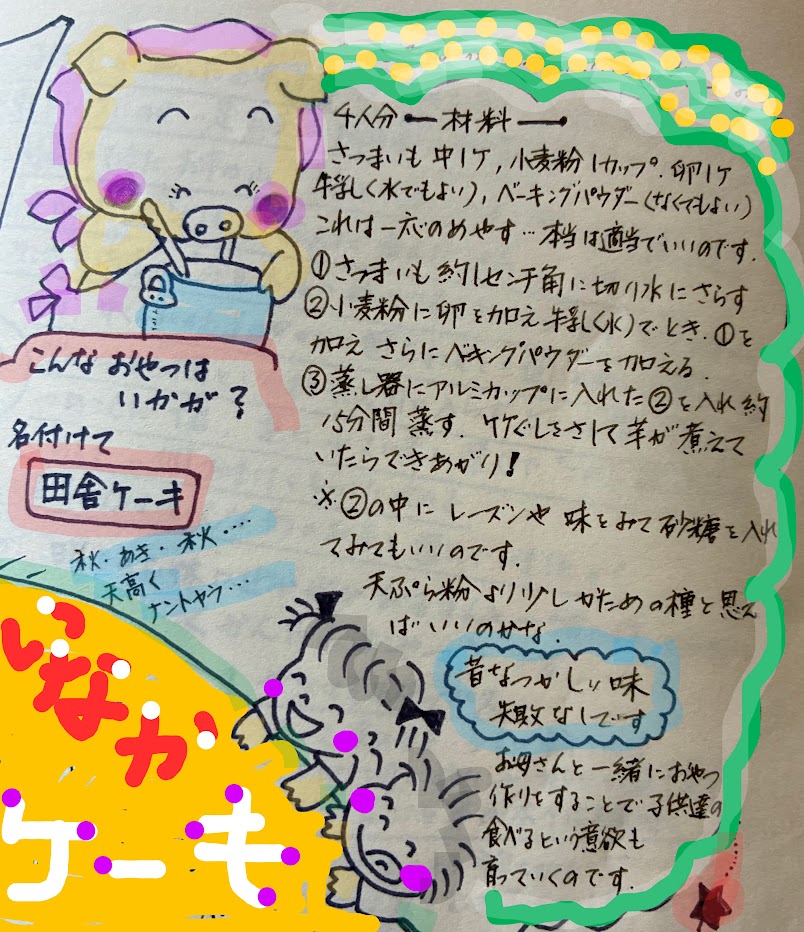 こんな おやつは
いかが?
名付けて
田舎ケーキ
秋・あき・秋・・・・
天高く
ナントヤラ・・・
いなか
ケーキ
4人分 材料
さつまいも 中1ケ, 小麦粉1カップ. 卵1ケ
牛乳(水でもよい), ベーキングパウダー(なくてもよい)
これは一応のめやす…本当は適当でいいのです.
①さつまいも 約1センチ角に切り水にさらす
②小麦粉に卵を加え牛乳(水)でとき. ①を
加え さらにベーキングパウダーを加える.
③蒸し器にアルミカップに入れた②を入れ 約
15分間 蒸す. 竹ぐしをさして芋が煮えて
いたらできあがり!
※②の中に レーズンや 味をみて 砂糖を入れ
てみてもいいのです.
天ぷら粉より少しかための種と思え
ばいいのかな.
昔なつかしい味
失敗なしです
お母さんと一緒におやつ
作りをすることで子供達の
食べるという意欲も
育っていくのです.